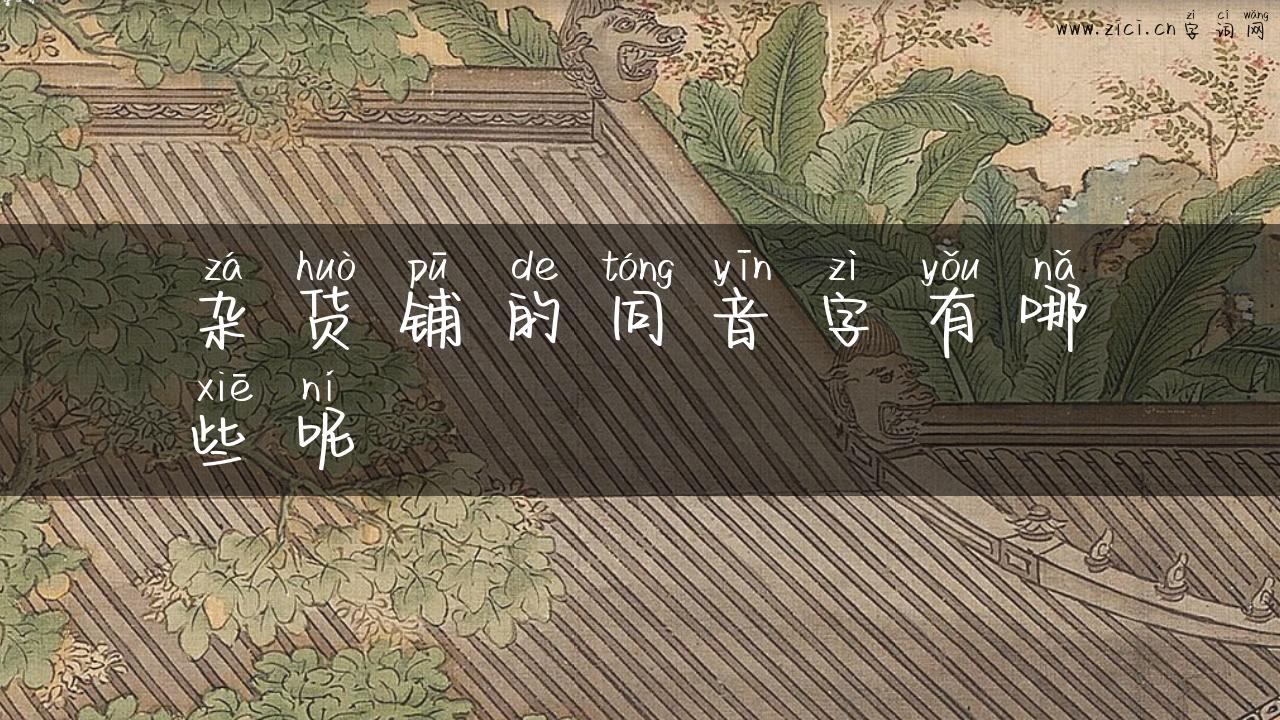 zì cí wǎng
www.zici.cn 字词网
zá huò pū de tóng yīn zì yǒu nǎ
杂货铺的同音字有哪
xiē ní
些呢